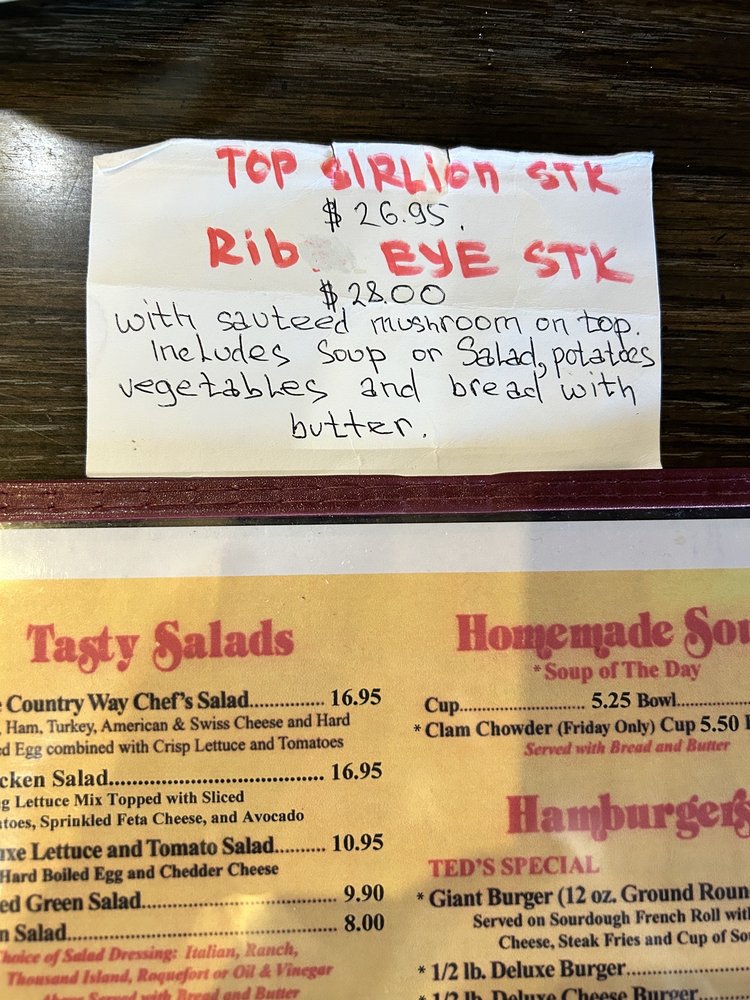 TOP SIRLION STK
$ 26.95.
Rib EYE STK
$ 28.00
with sauteed mushroom on top.
Includes Soup or Salad, potatoes
vegetables and bread with
butter.
Tasty Salads
Country Way Chef's Salad............... 16.95
, Ham, Turkey, American & Swiss Cheese and Hard
Egg combined with Crisp Lettuce and Tomatoes
Salad....................................... 16.95
Lettuce Mix Topped with Sliced
Sprinkled Feta Cheese, and Avocado
Lettuce and Tomato Salad.......... 10.95
Hard Boiled Egg and Chedder Cheese
Green Salad.................................... 9.90
Salad................................................ 8.00
Choice of Salad Dressing: Italian, Ranch,
Thousand Island, Roquefort or Oil & Vinegar
Above Served with Bread and Butter
Homemade
*Soup of The Day
Cup....................... 5.25 Bowl
* Clam Chowder (Friday Only) Cup 5.50
Served with Bread and Butter
Hamburgers
TED'S SPECIAL
* Giant Burger (12 oz. Ground
Served on Sourdough French Roll
Cheese, Steak Fries and Cup of
* 1/2 lb. Deluxe Burger
* 1/2 lb. Deluxe Cheese Burger